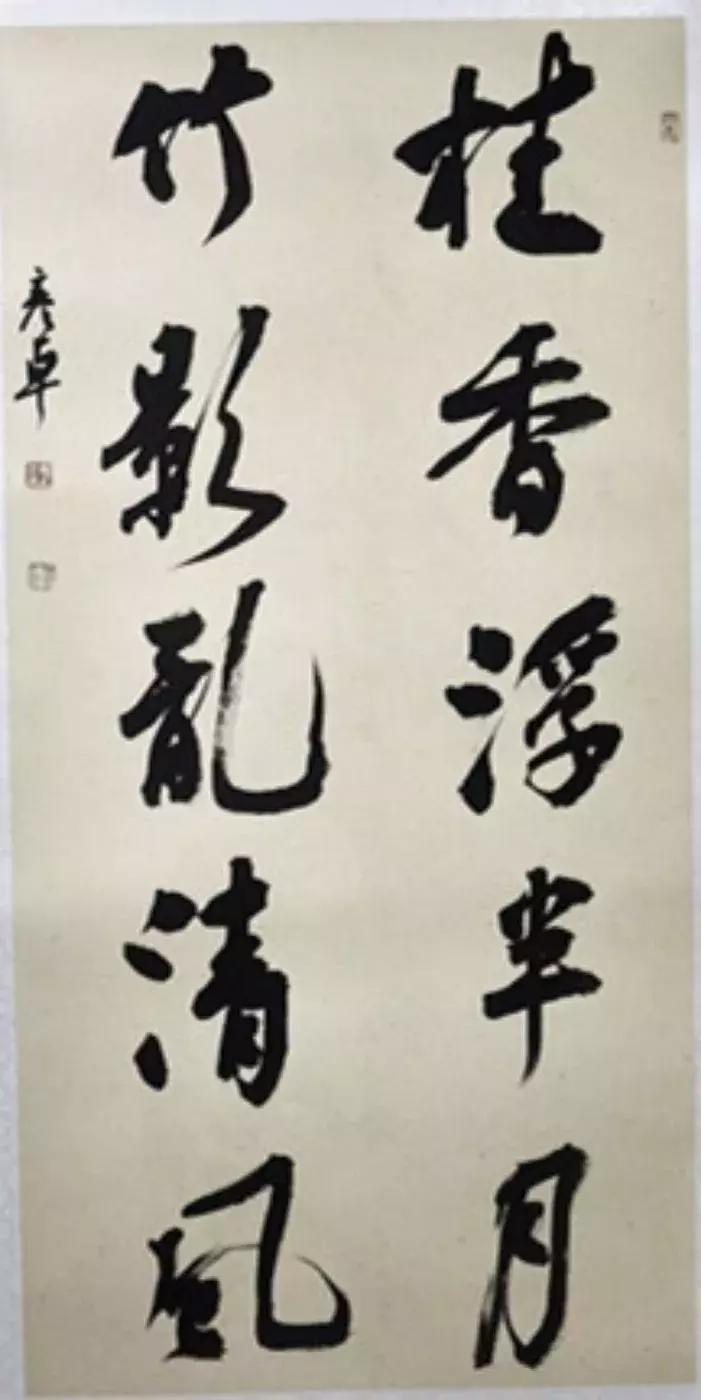 桂香浮半月
竹影亂清風
彦卓